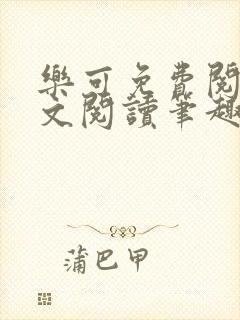 樂可免費閱
文閱讀筆趣
蒲巴甲